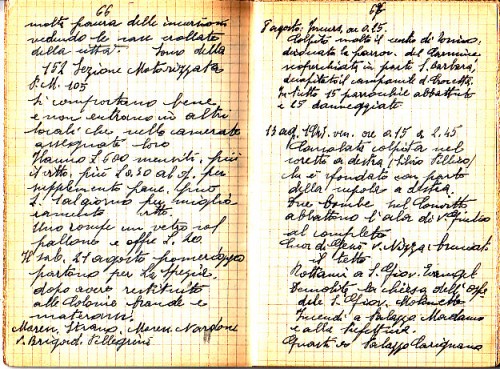 66
molta paura delle incursioni
vedendo le case crollate
della città. Sono della
152 Sezione Motorizzata
P.M. 105
Si comportano bene
e non entrano in altri
locali che nelle camerate
assegnate loro
Hanno L 600 mensili, più
il vitto, più L 0.50 al g. per
supplemento pane, più
L. 1 al giorno per miglio
ramento vitto.
Uno rompe un vetro col
pallone e offre L. 20.
Il sab. 21 agosto pomeriggio
partono per La Spezia,
dopo avere restituito
alle Colonie brande e
materassi.
Maren. Strano, Maren. Nardone
V. Brigad. Pellegrini
67
8 agosto. Incurs. ore 0.25
Colpito molto il centro di Torino,
distrutta la parroc. del Carmine
scoperchiata in parte S. Barbara,
decapitato il campanile di Crocetta.
In tutto 15 parrocchie abbattute
e 25 danneggiate
13 ag. 1943. ven. ore 0.15 a 2.45
Consolata colpita nel
coretto a destra (Silvio Pellico)
che è sfondato con parte
della cupola a destra.
Due bombe nel Convitto
abbattono l'ala di V. Giulio
al completo
Cuor di Gesù v. Nizza: bruciati
il tetto
Rottami a S. Giov. Evangel.
Demolita la chiesa dell'Osp.
dele S. Giov. Molinette
Incendi a Palazzo Madama
e alla Prefettura.
Guasti es Palazzo Carignano